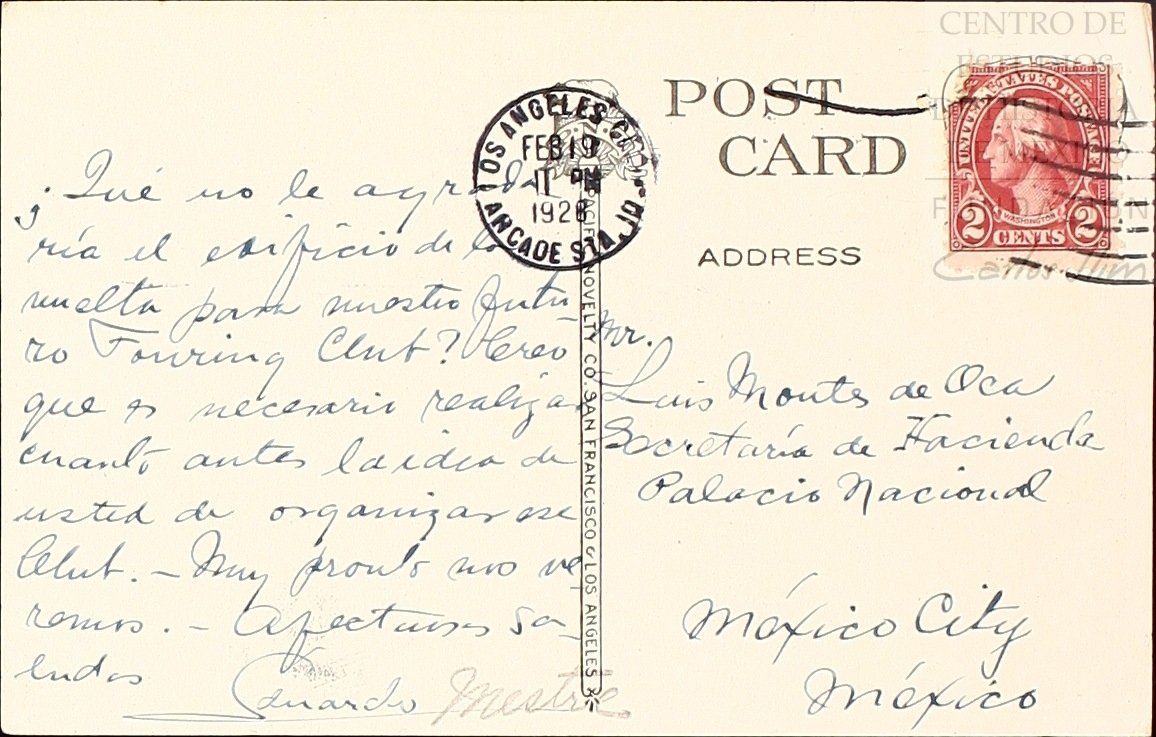 ¿Qué no le agrada
ría el edificio de la
vuelta para nuestro futu-
ro Touring Club? Creo
que es necesario realizar
cuanto antes la idea de
usted de organizar ese
Club. - Muy pronto nos ve
remos. - Afectuosos sa-
ludos
Eduardo Mestre
LOS ANGELES, CAL.
FEB 19
11 PM
1928
ARCADE STA.
PACIFIC NOVELTY CO. SAN FRANCISCO & LOS ANGELES
POST
CARD
ADDRESS
UNITED STATES POSTAGE
WASHINGTON
2 CENTS 2
Mr.
Luis Montes de Oca
Secretaría de Hacienda
Palacio Nacional
México City
México
CENTRO DE
ESTUDIOS
DE HISTORIA
DE MÉXICO
FUNDACIÓN
Carlos Slim